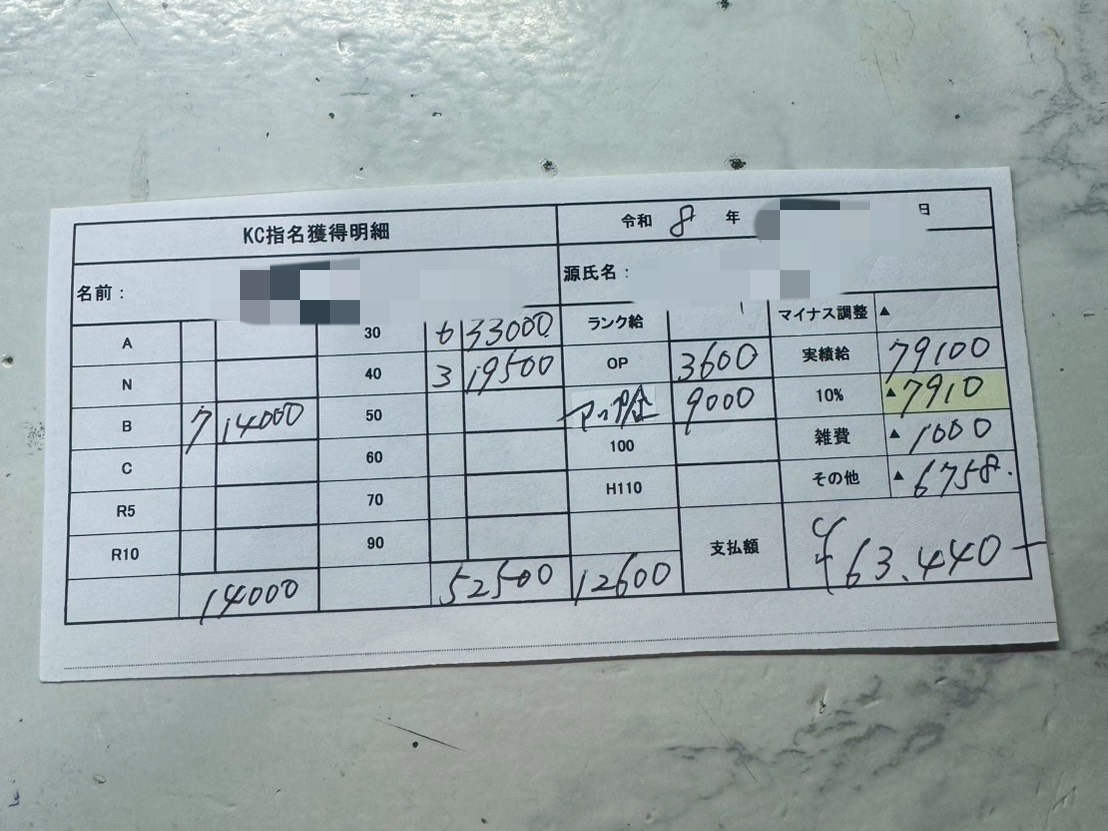 KC指名獲得明細 令和 8 年 日
名前： 源氏名：
A 30 6 33000 ランク給 マイナス調整 ▲
N 40 3 19500 OP 3600 実績給 79100
B 7 14000 50 9000 10% ▲7910
C 60 100 雑費 ▲1000
R5 70 H110 その他 ▲6758.
R10 90 支払額 ¥63.440-
14000 52500 12600